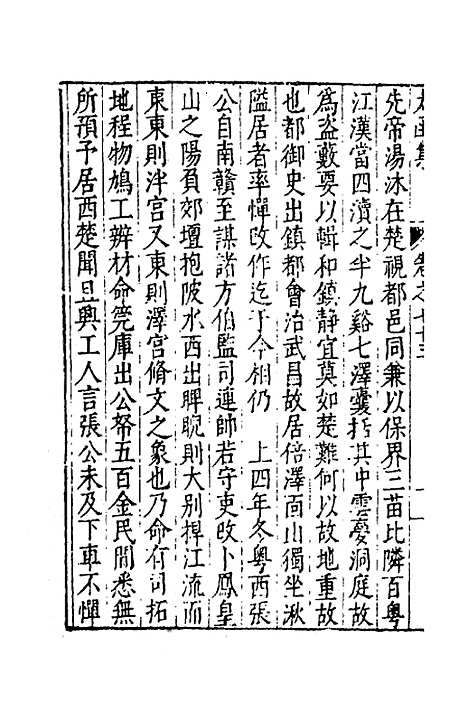 太函集 卷之七十三 一
先帝湯沐在楚視都邑同兼以保界三苗比隣百粤
江漢當四瀆之半九谿七澤囊括其中雲夢洞庭故
爲盜藪要以輯和鎮靜宜莫如楚難何以故地重故
也都御史出鎮都會治武昌故居倍澤面山獨坐湫
隘居者率憚改作迄于今相仍 上四年冬粤西張
公自南贛至謀諸方伯監司連帥若守吏改卜鳳皇
山之陽負郊壇抱陂水西出睥睨則大别捍江流而
東東則泮宮又東則澤宮脩文之象也乃命有司拓
地程物鳩工辨材命筦庫出公帑五百金民間悉無
所預予居西楚聞且興工人言張公未及下車不憚